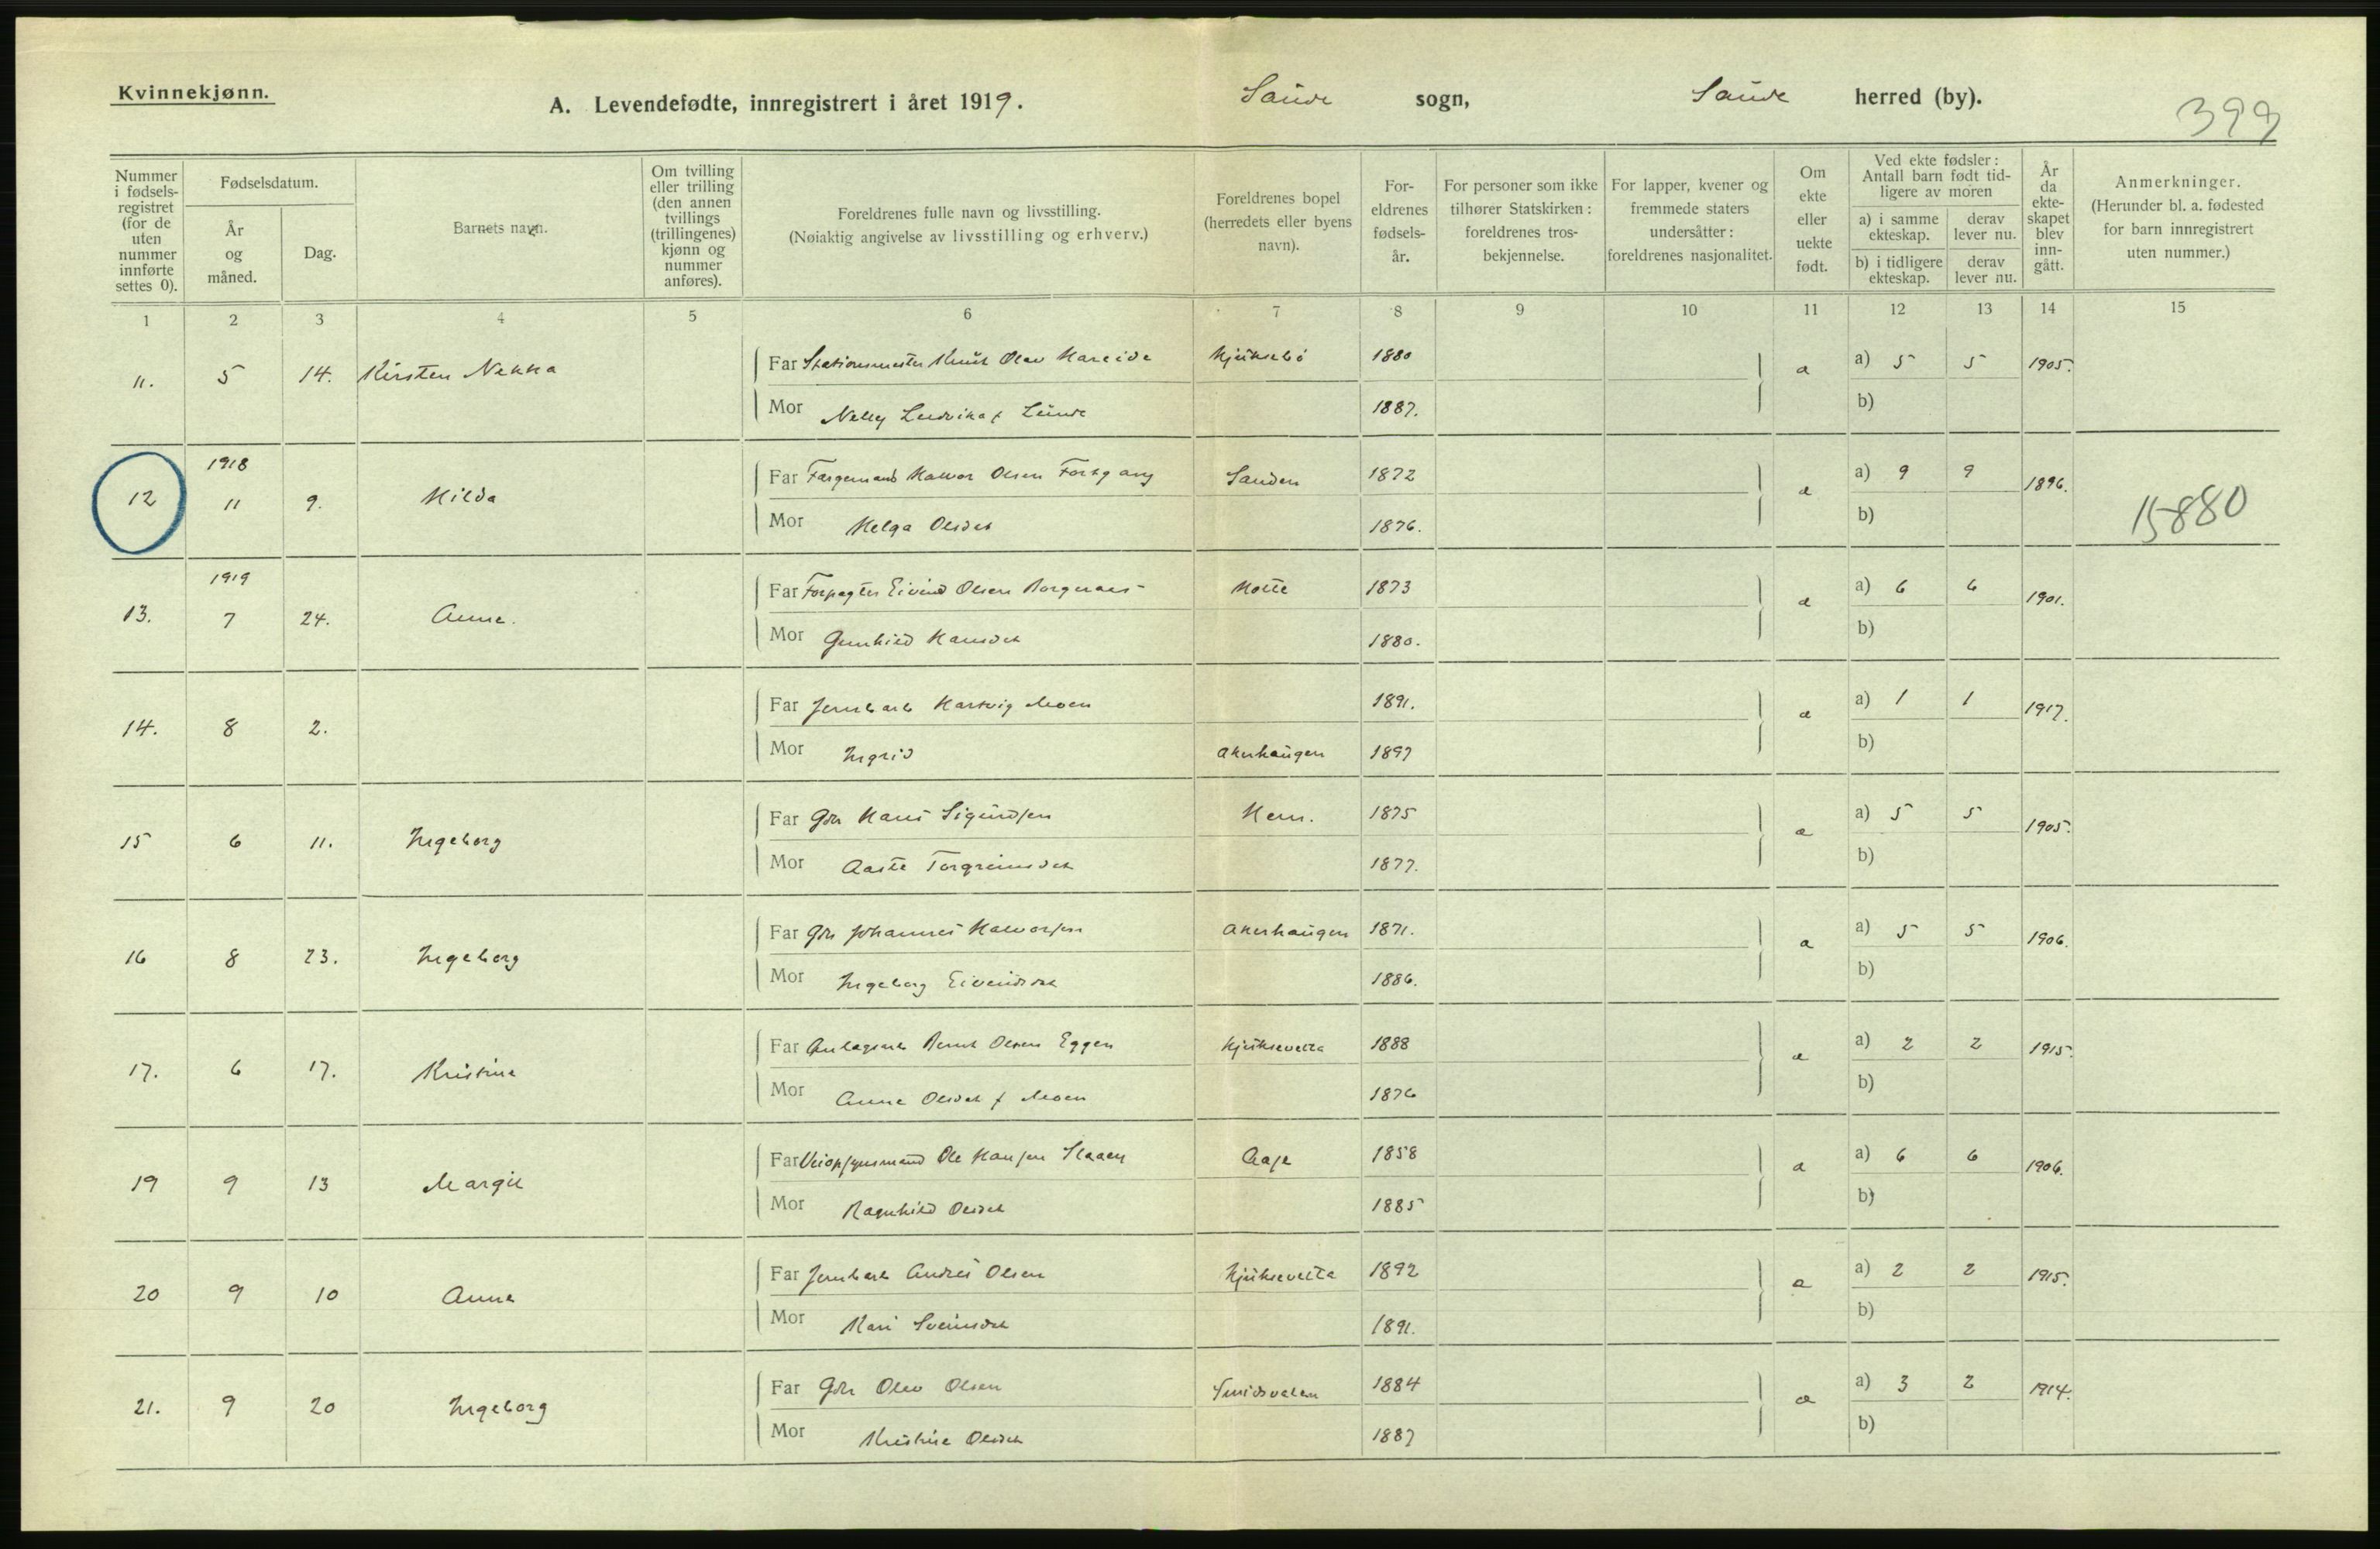 Kvinnekjønn.
A. Levendefødte, innregistrert i året 1919. Saude sogn, Saude herred (by).
399
Nummer i fødselsregistret (for de uten nummer innførte settes 0).
Fødselsdatum.
År og måned.
Dag.
Barnets navn.
Om tvilling eller trilling (den annen tvillings (trillingenes) kjønn og nummer anføres).
Foreldrenes fulle navn og livsstilling.
(Nøiaktig angivelse av livsstilling og erhverv.)
Foreldrenes bopel (herredets eller byens navn).
Foreldrenes fødselsår.
For personer som ikke tilhører Statskirken: foreldrenes trosbekjennelse.
For lapper, kvener og fremmede staters undersåtter: foreldrenes nasjonalitet.
Om ekte eller uekte født.
Ved ekte fødsler: Antall barn født tidligere av moren
a) i samme ekteskap. derav lever nu.
b) i tidligere ekteskap. derav lever nu.
År da ekteskapet blev inngått.
Anmerkninger.
(Herunder bl. a. fødested for barn innregistrert uten nummer.)
1 2 3 4 5 6 7 8 9 10 11 12 13 14 15
11. 5 14. Kirsten Nekka Far Stationsmester Knut Olav Hareide Hjuksebø 1880 a a) 5 5 1905.
Mor Nelly Ludvika f Lunde 1887. b)
12 1918 11 9. Hilda Far Færgemand Halvor Olsen Fortgang Sanden 1872 a a) 9 9 1896. 15880
Mor Helga Olsdat 1876. b)
13. 1919 7 24. Anne. Far Forpagter Eivind Olsen Borgenæs Holte 1873 a a) 6 6 1901.
Mor Gunhild Hansdat 1880. b)
14. 8 2. Far Jernbarb Hartvig Moen 1891. a a) 1 1 1917.
Mor Ingrid Akerhaugen 1897 b)
15 6 11. Ingeborg Far Gbr Hans Sigurdsen Hem. 1875 a a) 5 5 1905.
Mor Aaste Torgrimsdat 1877. b)
16 8 23. Ingeborg Far Gbr Johannes Halvorsen Akerhaugen 1871. a a) 5 5 1906.
Mor Ingeborg Eivindsdat 1886. b)
17. 6 17. Kristine Far Anlægsarb Bernt Olsen Eggen Hjuksevelta 1888 a a) 2 2 1915.
Mor Anne Olsdat f Moen 1876 b)
19 9 13 Margit Far Veiopsynsmand Ole Hansen Staaen Aase 1858 a a) 6 6 1906.
Mor Ragnhild Olsdat 1885 b)
20 9 10 Anne Far Jernbarb Andres Olsen Hjuksevelta 1892 a a) 2 2 1915.
Mor Kari Sveinsdat 1891. b)
21. 9 20 Ingeborg Far Gbr Olav Olsen 1884 a a) 3 2 1914.
Mor Kristine Olsdat 1887 b)